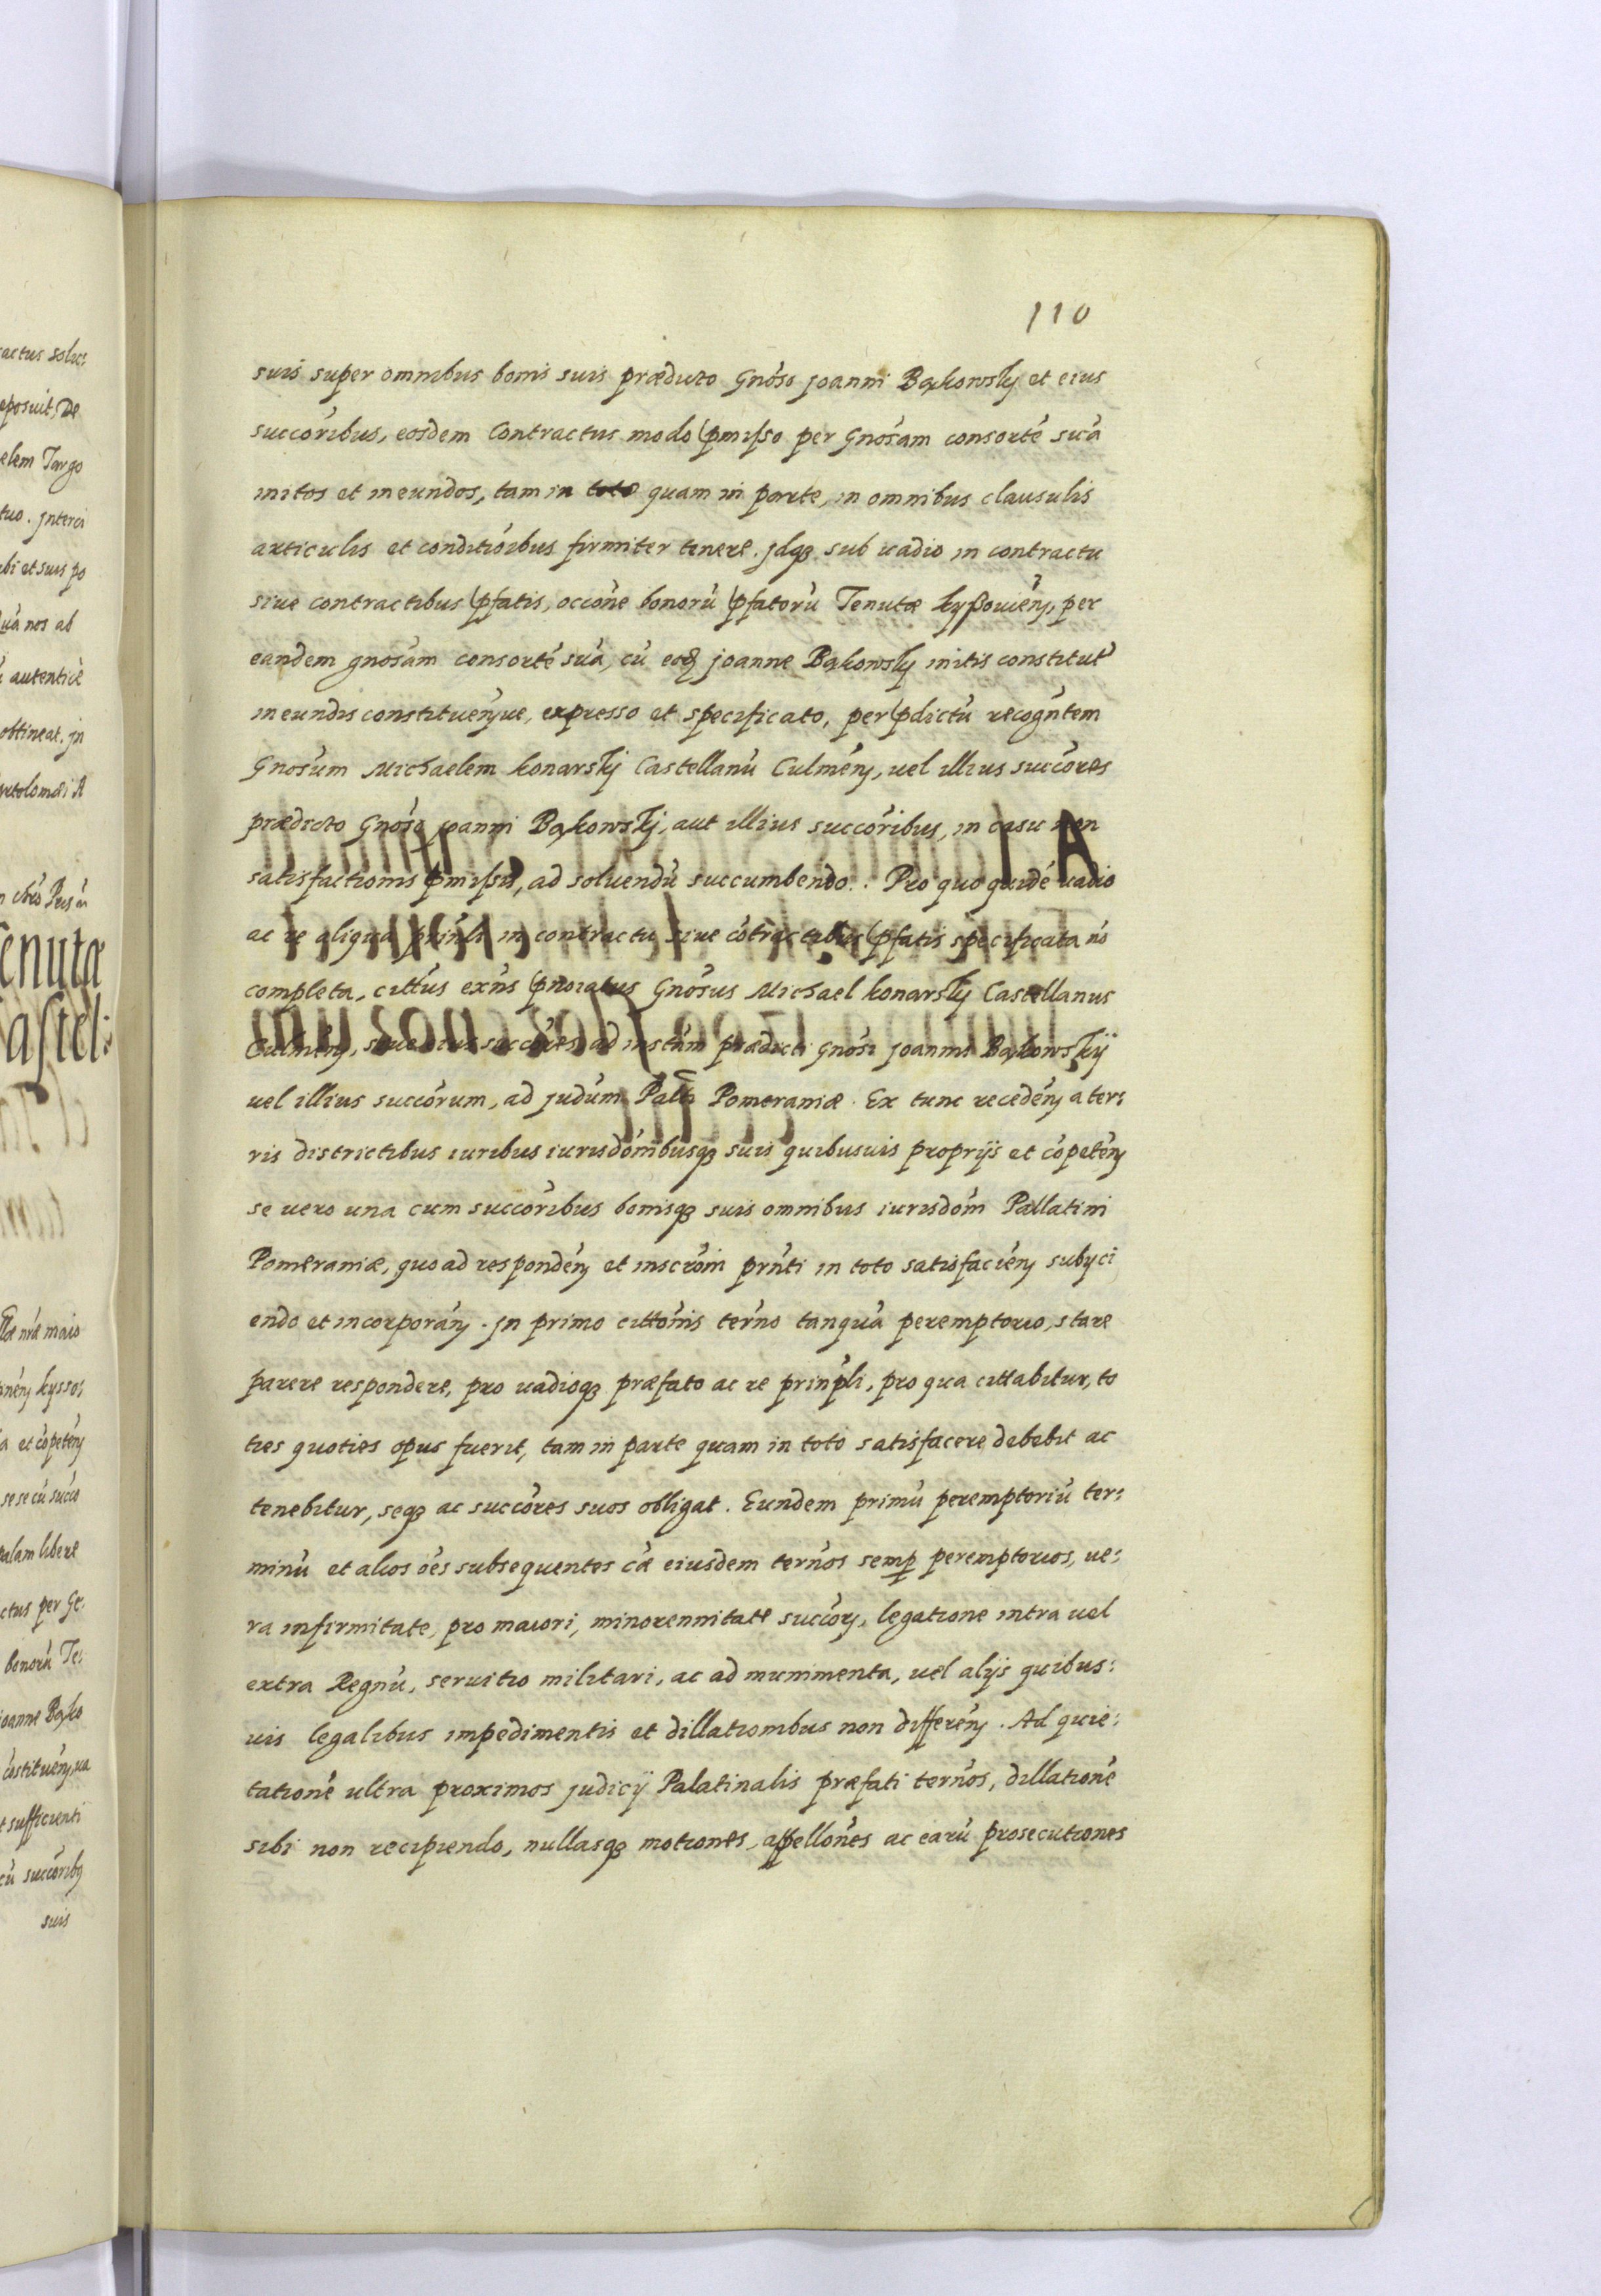 110
suis super omnibus bonis suis prædicto Gnoso Joanni Bąkowsky et eius
succoribus, eosdem Contractus modo pmisso per Gnosam consorte sua
initos et ineundos, tam in toto quam in parte, in omnibus clausulis
articulis et conditioibus firmiter tenere. Jdq sub uadio in contractu
siue contractibus pfatis, occone bonoru pfatoru Tenutæ kyßouien, per
eandem gnosam consorte sua, cu eod Joanne Bąkowsky initis constitut
ineundis constituenue, expresso et specificato, per pdictu recogntem
Gnosum Michaelem konarskj Castellanu Culmen, uel illius succores
prædicto Gnoso Joanni Bąkowskj, aut illius succoribus, in casu non
satisfactionis pmissu, ad soluendu succumbendo. Pro quo quide uadio
ac re aliqua prinli in contractu siue cotractibus pfatis specificata no
completa, cittus exns pnoiatus Gnosus Michael konarsky Castellanus
Culmen, siue eius succores ad instam prædicti Gnosi Joannis Bąkowskij
uel illius succorum, ad judum Paltī Pomeraniæ. Ex tunc receden a ter:
ris districtibus iuribus iurisdombusq suis quibusuis proprijs et copeten
se uero una cum succoribus bonisq suis omnibus iurisdom Pallatini
Pomeraniæ, quo ad responden et inscroni prnti in toto satisfacien subyci
endo et incorporan. Jn primo cittonis terno tanqua peremptorio, stare
parere respondere, pro uadioq præfato ac re prinpli, pro qua cittabitur, to
ties quoties opus fuerit, tam in parte quam in toto satisfacere debebit ac
tenebitur, seq ac succores suos obligat. Eundem primu peremptoriu ter:
minu et alios oes subsequentes cæ eiusdem ternos semp peremptorios, ue:
ra infirmitate, pro maiori, minorennitate succory, legatione intra uel
extra Regnu, seruitio militari, ac ad munimenta, uel alijs quibus:
uis legalibus impedimentis et dillationibus non differen. Ad quie:
tatione ultra proximos judicij Palatinalis præfati ternos, dillatione
sibi non recipiendo, nullasq motiones, appellones ac earu prosecutiones